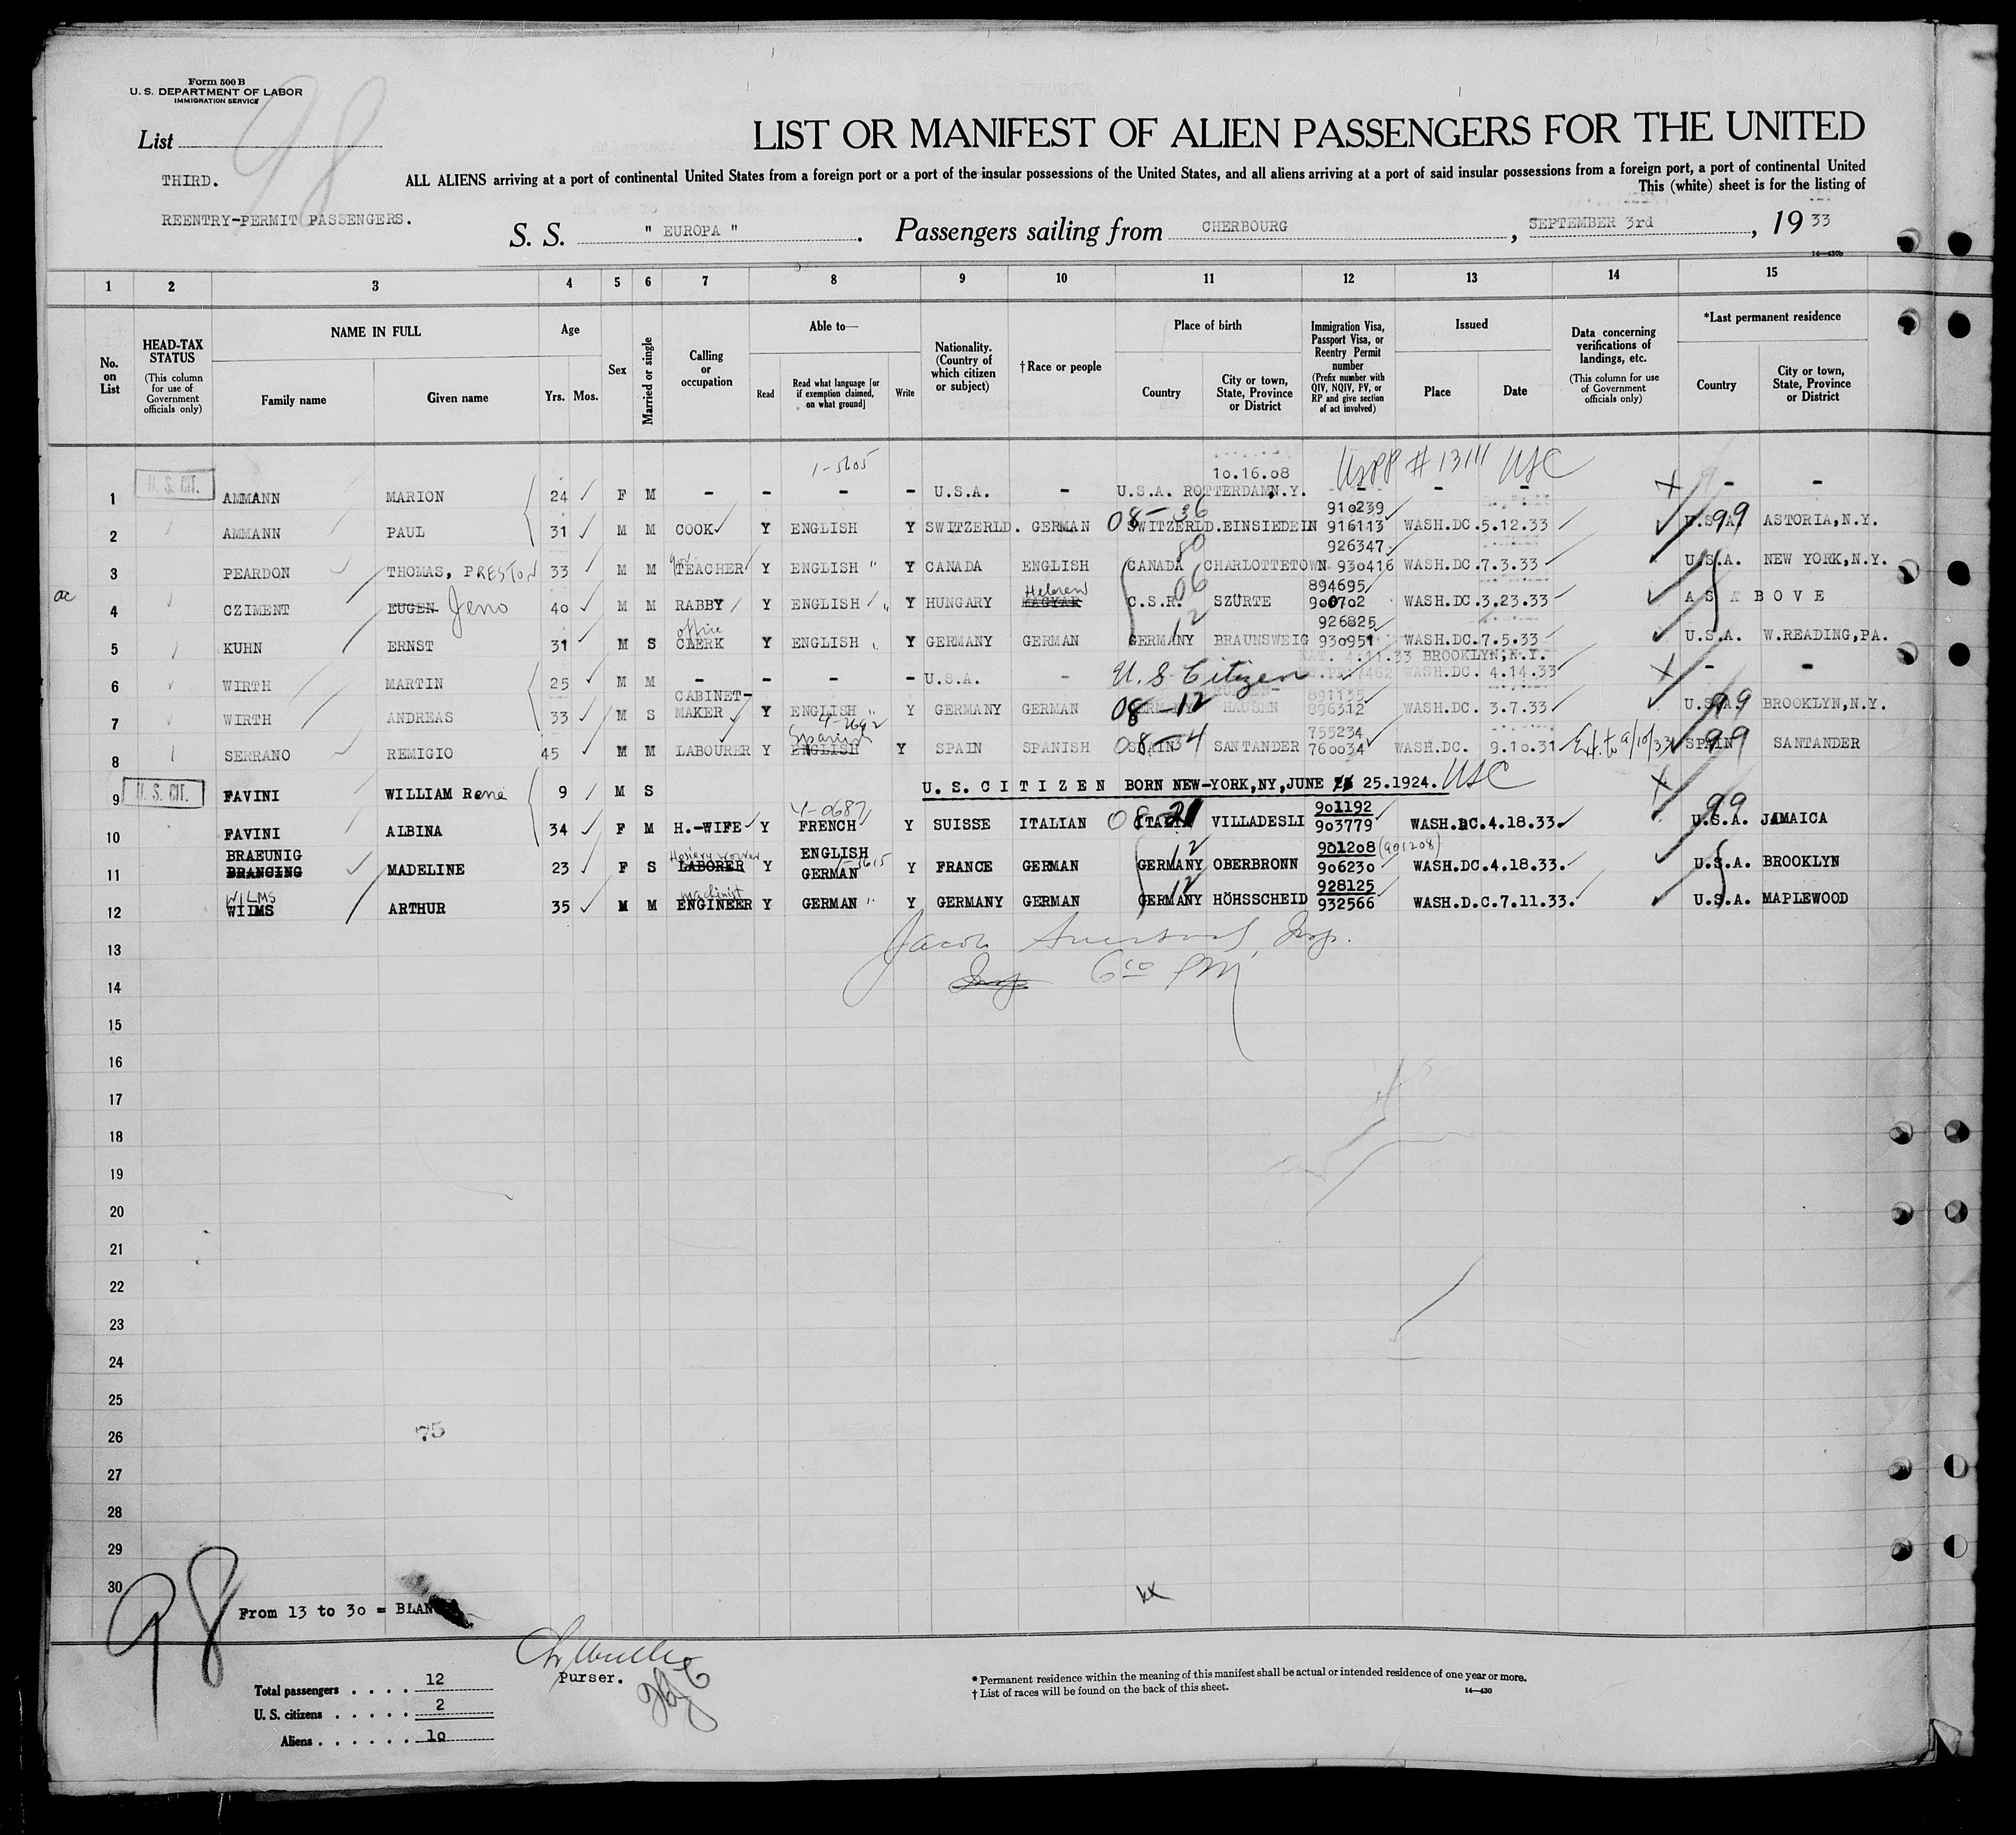 Form 500 B
U. S. DEPARTMENT OF LABOR
IMMIGRATION SERVICE
98
List
LIST OR MANIFEST OF ALIEN PASSENGERS FOR THE UNITED
THIRD.
ALL ALIENS arriving at a port of continental United States from a foreign port or a port of the insular possessions of the United States, and all aliens arriving at a port of said insular possessions from a foreign port, a port of continental United
This (white) sheet is for the listing of
REENTRY-PERMIT PASSENGERS.
S. S. " EUROPA " . Passengers sailing from CHERBOURG , SEPTEMBER 3rd , 19 33
14—430b
1 2 3 4 5 6 7 8 9 10 11 12 13 14 15
No. on List
HEAD-TAX STATUS (This column for use of Government officials only)
NAME IN FULL Family name Given name
Age Yrs. Mos.
Sex
Married or single
Calling or occupation
Able to— Read Read what language [or if exemption claimed, on what ground] Write
Nationality. (Country of which citizen or subject)
† Race or people
Place of birth Country City or town, State, Province or District
Immigration Visa, Passport Visa, or Reentry Permit number (Prefix number with QIV, NQIV, PV, or RP and give section of act involved)
Issued Place Date
Data concerning verifications of landings, etc. (This column for use of Government officials only)
*Last permanent residence Country City or town, State, Province or District
1-5605 10.16.08 USPP # 13111 USC
1 U. S. CIT. AMMANN MARION 24 F M - - - - U.S.A. - U.S.A. ROTTERDAM N.Y. - - - - -
910239
2 AMMANN PAUL 31 M M COOK Y ENGLISH Y SWITZERLD. GERMAN 08-36 SWITZERLD. EINSIEDELN 916113 WASH.DC. 5.12.33 U.S.A. 99 ASTORIA, N.Y.
926347 80
3 PEARDON THOMAS, PRESTON 33 M M TEACHER Y ENGLISH " Y CANADA ENGLISH CANADA CHARLOTTETOWN 930416 WASH.DC. 7.3.33 U.S.A. NEW YORK, N.Y.
ac Hebrew 894695
4 CZIMENT EUGEN Jeno 40 M M RABBY Y ENGLISH " Y HUNGARY MAGYAR C.S.R. 06 SZÜRTE 900702 WASH.DC. 3.23.33 A S A B O V E
office 926825
5 KUHN ERNST 31 M S CLERK Y ENGLISH " Y GERMANY GERMAN GERMANY 12 BRAUNSWEIG 930951 WASH.DC. 7.5.33 U.S.A. W.READING, PA.
4.11.33 BROOKLYN, N.Y.
6 WIRTH MARTIN 25 M M - - - - U.S.A. - U.S Citizen WASH.DC. 4.14.33 - -
CABINET- 891135
7 WIRTH ANDREAS 33 M S MAKER Y ENGLISH " Y GERMANY GERMAN 08-12 HAUSEN 896312 WASH.DC. 3.7.33 U.S.A. 99 BROOKLYN, N.Y.
4-2692 Spanish 755234
8 SERRANO REMIGIO 45 M M LABOURER Y ENGLISH Y SPAIN SPANISH 08-4 SPAIN SANTANDER 760034 WASH.DC. 9.10.31 Ext. to 9/10/33 SPAIN 99 SANTANDER
9 U. S. CIT. FAVINI WILLIAM René 9 M S U. S. C I T I Z E N BORN NEW-YORK, NY, JUNE 25.1924. USC
4-0687 901192
10 FAVINI ALBINA 34 F M H.-WIFE Y FRENCH Y SUISSE ITALIAN 08 21 ITALY VILLADESLI 903779 WASH.DC. 4.18.33. 99 U.S.A. JAMAICA
BRAEUNIG Hosiery worker ENGLISH 901208 (901208)
11 BRANGING MADELINE 23 F S LABORER Y GERMAN Y FRANCE GERMAN GERMANY 12 OBERBRONN 906230 WASH.DC. 4.18.33. U.S.A. BROOKLYN
WILMS machinist 928125
12 WIIMS ARTHUR 35 M M ENGINEER Y GERMAN " Y GERMANY GERMAN GERMANY 12 HÖHSSCHEID 932566 WASH.D.C. 7.11.33. U.S.A. MAPLEWOOD
13 Jacob
14 6 PM
15
16
17
18
19
20
21
22
23
24
25
26 75
27
28
29
30
98
From 13 to 30 = BLAN
Purser.
Total passengers . . . . 12
U. S. citizens . . . . . 2
Aliens . . . . . . 10
* Permanent residence within the meaning of this manifest shall be actual or intended residence of one year or more.
† List of races will be found on the back of this sheet.
14—430